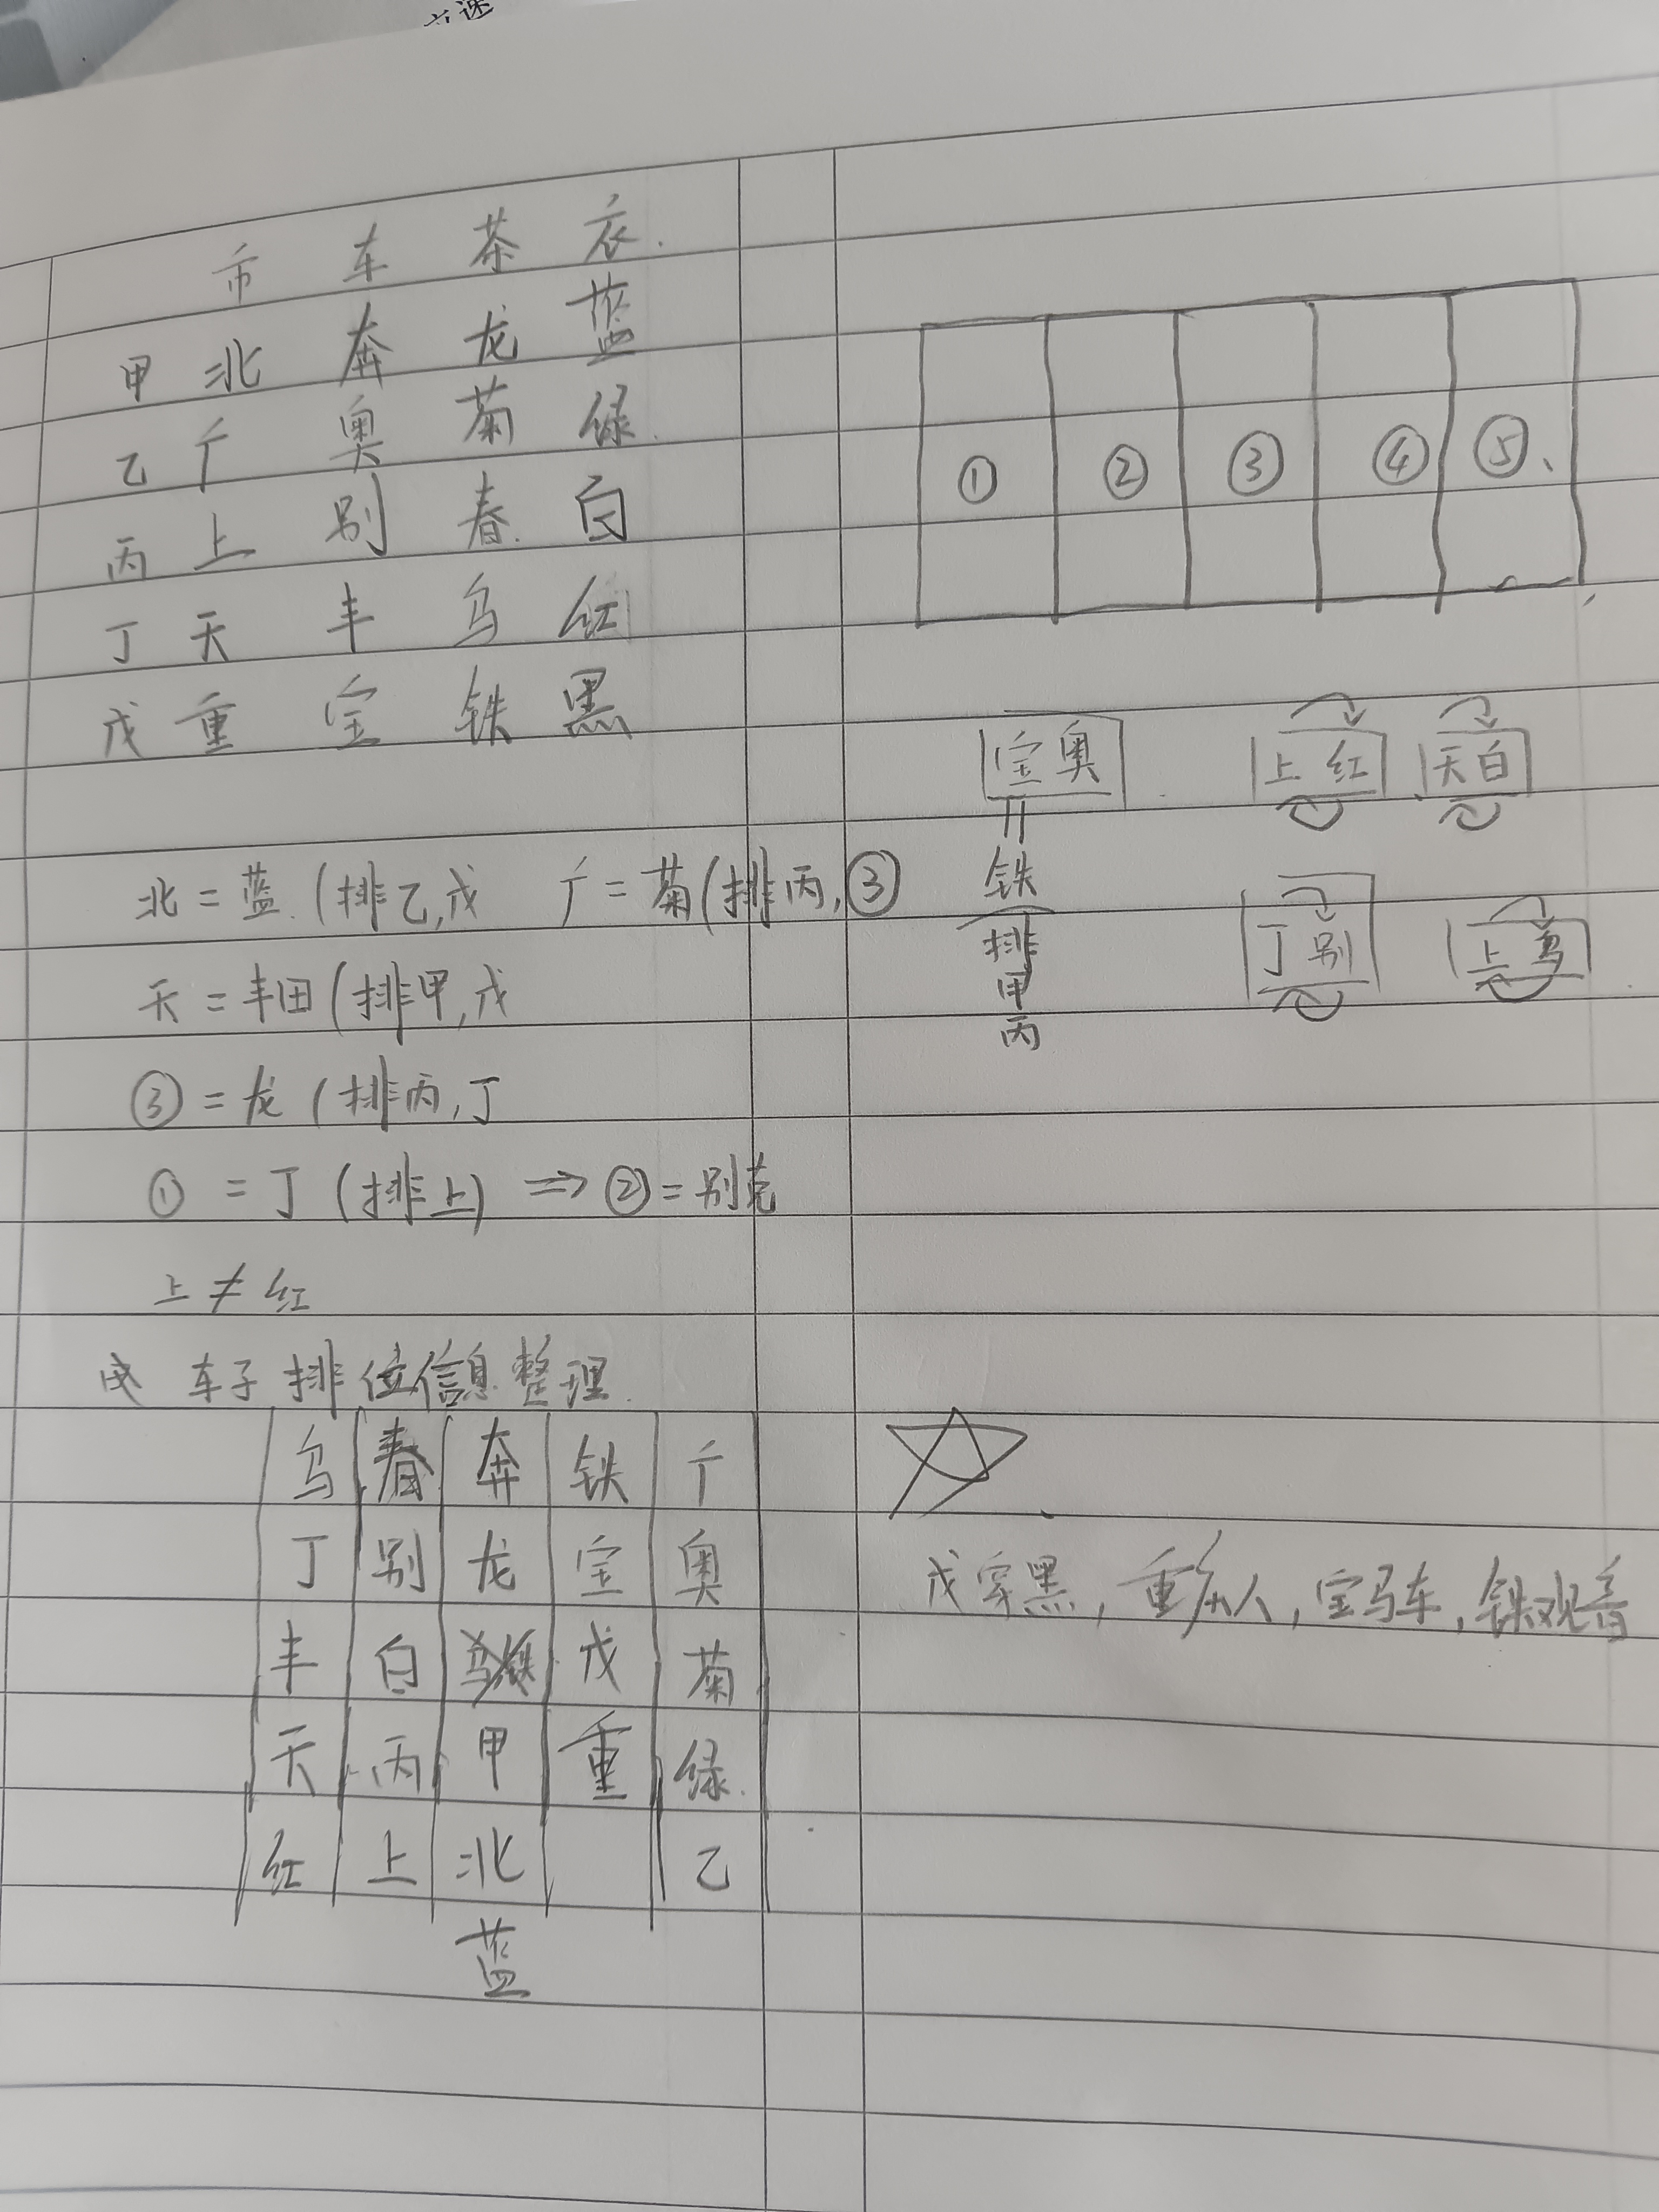 速
市 车 茶 衣.
甲 北 奔 龙 蓝
乙 广 奥 菊 绿.
丙 上 别 春 白
丁 天 丰 乌 红
戊 重 宝 铁 黑
① ② ③ ④ ⑤、
宝 奥
上 红
天 白
=
铁
排
甲
丙
丁 别
上 乌
北 = 蓝. (排乙,戊 广 = 菊(排丙,③
天 = 丰田 (排甲,戊
③ = 龙 (排丙,丁
① = 丁 (排上) => ② = 别克
上 ≠ 红
车子排位信息整理.
乌 春 奔 铁 广
丁 别 龙 宝 奥
丰 白 戊 菊
天 丙 甲 重 绿.
红 上 北 乙
蓝
戊穿黑, 重庆人, 宝马车, 铁观音